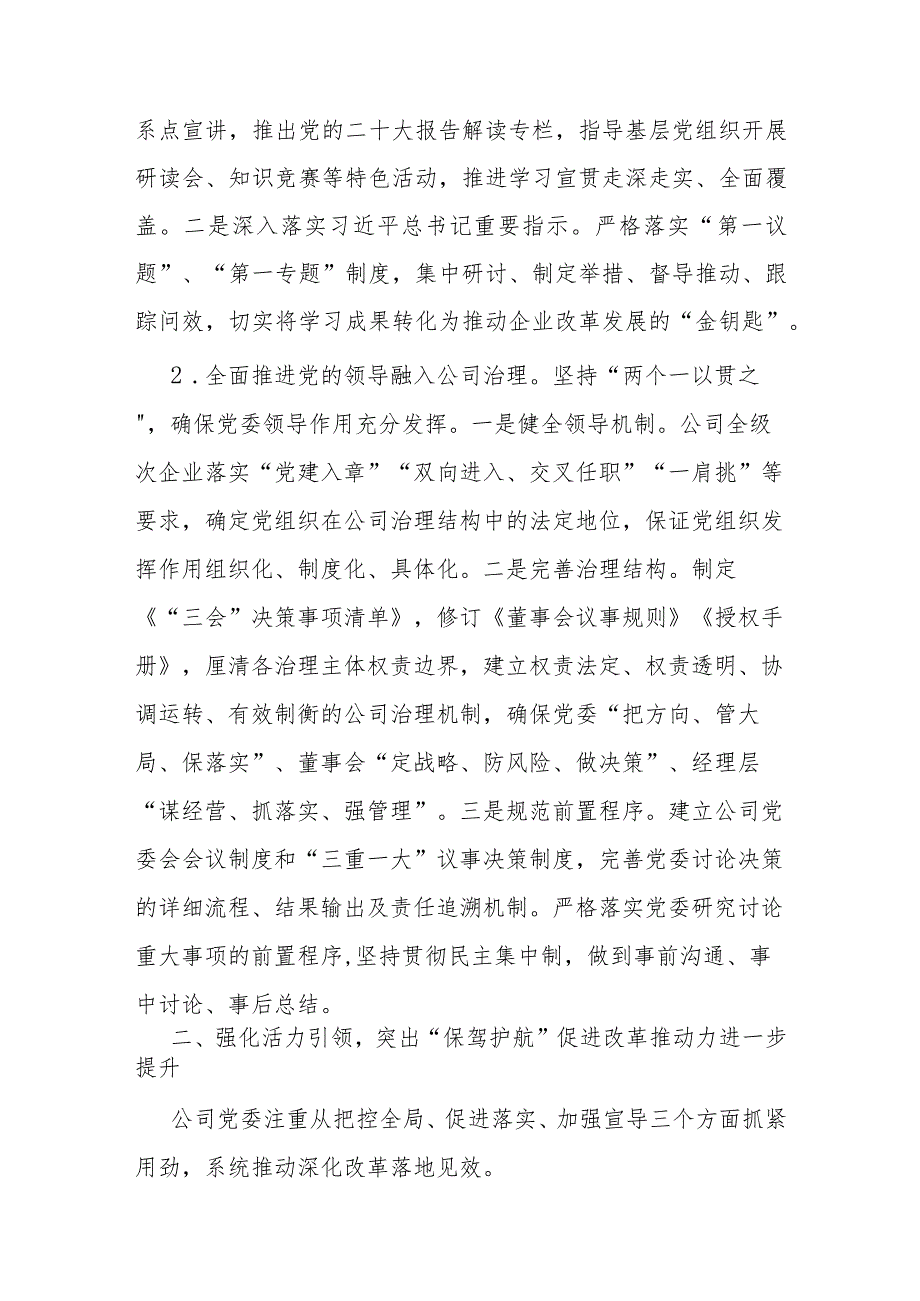 系点宣讲，推出党的二十大报告解读专栏，指导基层党组织开展
研读会、知识竞赛等特色活动，推进学习宣贯走深走实、全面覆
盖。二是深入落实习近平总书记重要指示。严格落实“第一议
题”、“第一专题”制度，集中研讨、制定举措、督导推动、跟
踪问效，切实将学习成果转化为推动企业改革发展的“金钥匙”。
2.全面推进党的领导融入公司治理。坚持“两个一以贯之
"，确保党委领导作用充分发挥。一是健全领导机制。公司全级
次企业落实“党建入章”“双向进入、交叉任职”“一肩挑”等
要求，确定党组织在公司治理结构中的法定地位，保证党组织发
挥作用组织化、制度化、具体化。二是完善治理结构。制定
《“三会”决策事项清单》，修订《董事会议事规则》《授权手
册》，厘清各治理主体权责边界，建立权责法定、权责透明、协
调运转、有效制衡的公司治理机制，确保党委“把方向、管大
局、保落实”、董事会“定战略、防风险、做决策”、经理层
“谋经营、抓落实、强管理”。三是规范前置程序。建立公司党
委会会议制度和“三重一大”议事决策制度，完善党委讨论决策
的详细流程、结果输出及责任追溯机制。严格落实党委研究讨论
重大事项的前置程序,坚持贯彻民主集中制，做到事前沟通、事
中讨论、事后总结。
二、强化活力引领，突出“保驾护航”促进改革推动力进一步
提升
公司党委注重从把控全局、促进落实、加强宣导三个方面抓紧
用劲，系统推动深化改革落地见效。